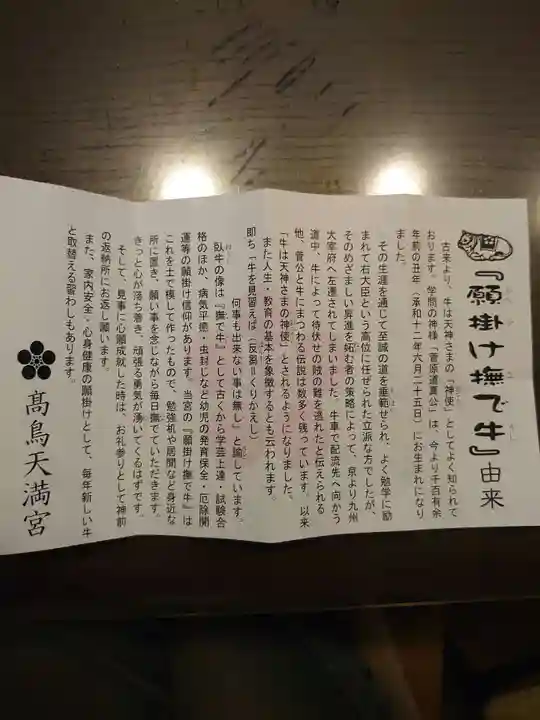 『願掛け撫で牛』由来
古来より、牛は天神さまの「神使」としてよく知られて
おります。学問の神様「菅原道真公」は、今より千百有余
年前の丑年（承和十二年六月二十五日）にお生まれになり
ました。
その生涯を通じて至誠の道を垂範せられ、よく勉学に励
まれて右大臣という高位に任ぜられた立派な方でしたが、
そのめざましい昇進を妬む者の策略によって、京より九州
大宰府へ左遷されてしまいました。牛車で配流先へ向かう
道中、牛によって待伏せの賊の難を逃れたと伝えられる
他、菅公と牛にまつわる伝説は数多く残っています。以来
「牛は天神さまの神使」とされるようになりました。
また人生・教育の基本を象徴するとも云われます。
即ち「牛を見習えば（反芻＝くりかえし）
何事も出来ない事は無し」と諭しています。
臥牛の像は『撫で牛』として古くから学芸上達・試験合
格のほか、病気平癒・虫封じなど幼児の発育保全・厄除開
運等の願掛け信仰があります。当宮の『願掛け撫で牛』は
これを土で模して作ったもので、勉強机や居間など身近な
所に置き、願い事を念じながら毎日撫でていただきます。
きっと心が落ち着き、頑張る勇気が湧いてくるはずです。
そして、見事に心願成就した時は、お礼参りとして神前
の返納所にお返し願います。
また、家内安全・心身健康の願掛けとして、毎年新しい牛
と取替える習わしもあります。
高鳥天満宮